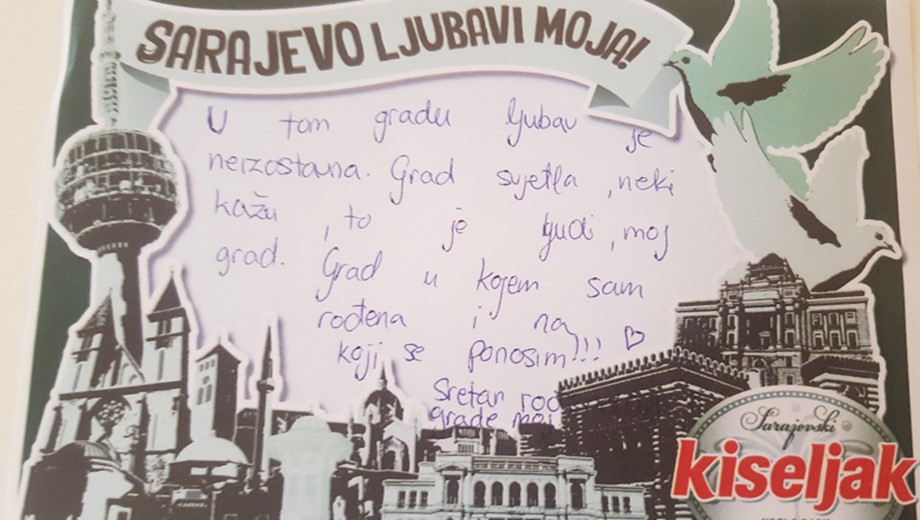 SARAJEVO LJUBAVI MOJA!
U tom gradu ljubav je
neizostavna. Grad svjetla, neki
kažu, to je ljudi, moj
grad. Grad u kojem sam
rođena i na
koji se ponosim!!! ♡
Sretan rođ
grade moj
Sarajevski
kiseljak